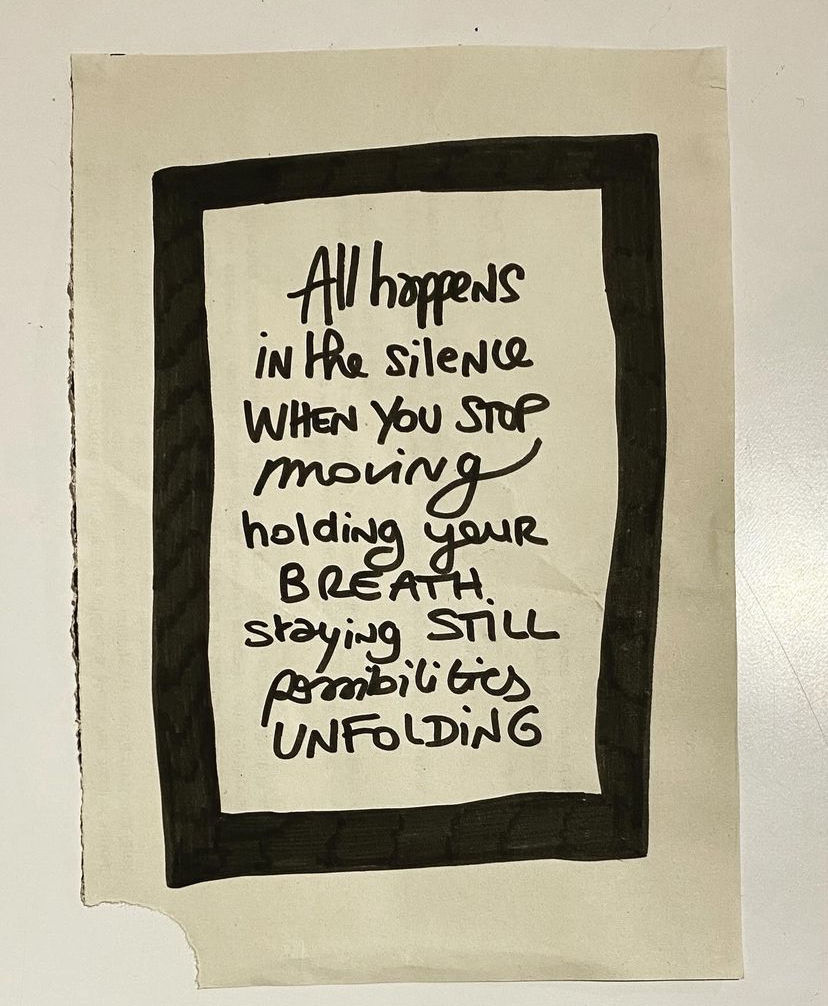 All happens
in the silence
WHEN YOU STOP
moving
holding your
BREATH.
staying STILL
possibilities
UNFOLDING